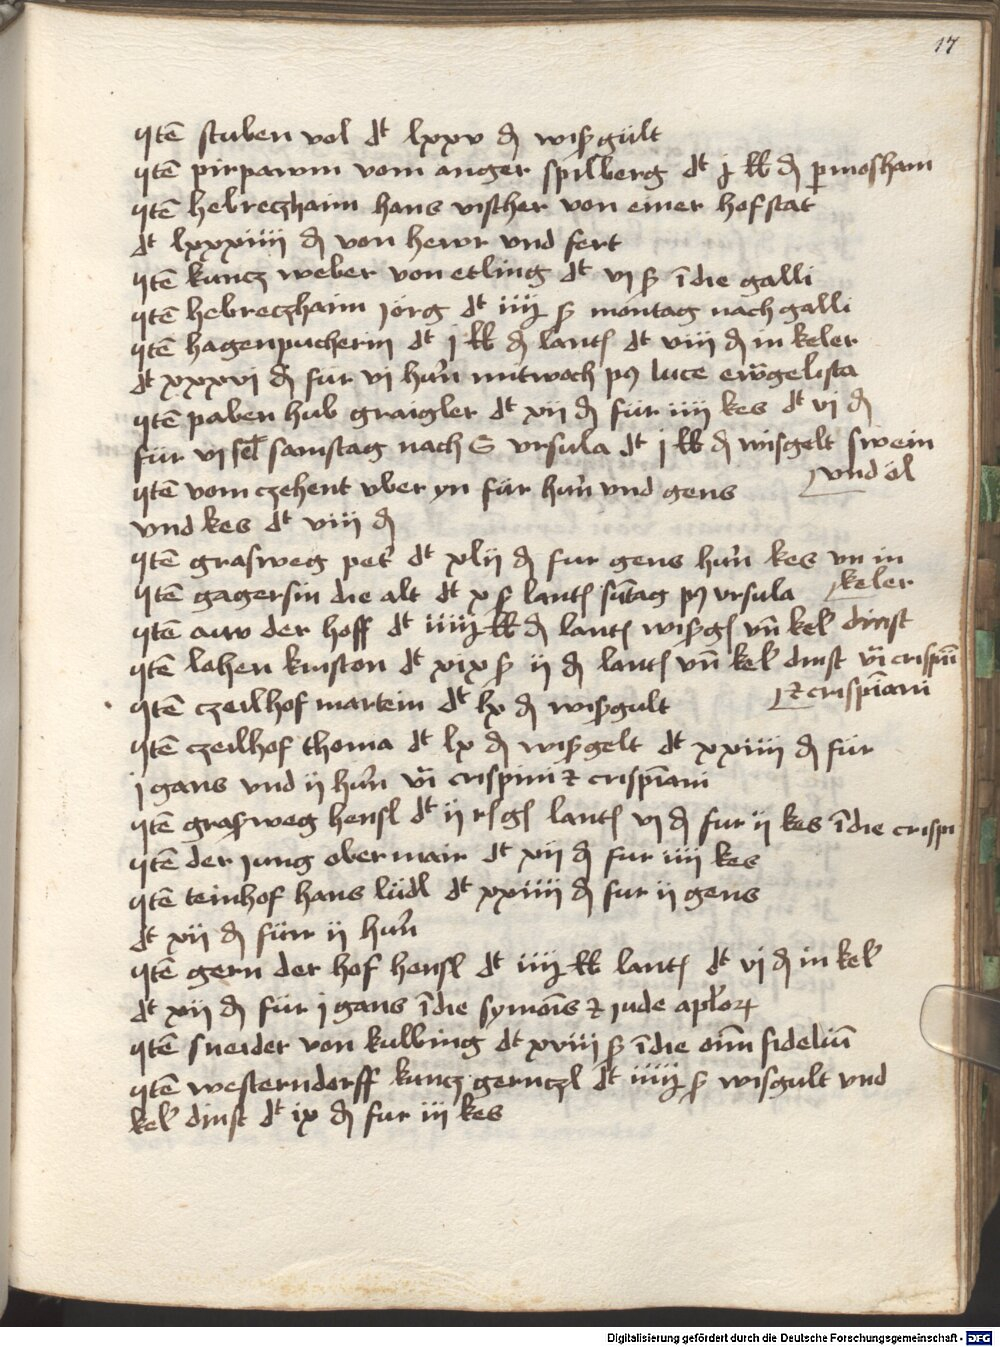 17
Itē stuben vol dt lxxv ₰ wisgült
Itē pirpawm vom anger spilberg dt j lb ₰ pmosham
Itē hebreczhaim hans vischer von einer hofstat
dt lxxxiiii ₰ von hewr vnd fert
Itē kuncz weber von etling dt vi ß ī die galli
Itē hebreczhaim jörg dt ß montag nach galli
Itē hagenpucherin dt j lb ₰ lantß dt viii ₰ in keler
dt xxxvi ₰ für vi hūn mitwoch pꝯ luce ewāgelista
Itē paben hub graigler dt xii ₰ für iiii kes dt vi ₰
für vi samstag nach S vrsula dt j lb ₰ wisgelt swein
vnd öl
Itē vom czehent vber yn für hūn vnd gens
vnd kes dt viii ₰
Itē grasweg pet dt xlii ₰ fur gens hūn kes vn in
keler
Itē gagersin die alt dt x ß lantß sūtag pꝯ vrsula
Itē aw der hoff dt lb ₰ lantß wisgß vn̄ kel dinst
Itē lohen kriston dt xix ß ii ₰ lantß vn̄ kel dinst vī crispinī
⁊ crispīani
Itē czeilhof martein dt lx ₰ wisgult
Itē czeilhof thoma dt lx ₰ wisgelt dt xxiiii ₰ für
j gans vnd ii hūn vī crispini ⁊ crispīani
Itē grasweg hensl dt ii lantß vi ₰ fur ii kes ī die crispi
Itē der jung obermair dt xii ₰ fur iiii kes
Itē teinhof hans lüdl dt xxiiii ₰ fur ii gens
dt xii ₰ für ii hūn
Itē gern der hof hensl dt lb lantß dt vi ₰ in kel
dt xii ₰ für j gans ī die symoīs ⁊ jude aptoꝝ
Itē sneider von kulbing dt xviii ß ī die om̄ fideliū
Itē westerndorff kuncz gernczl dt ß wisgult vnd
kel dinst dt ix ₰ fur iii kes
Digitalisierung gefördert durch die Deutsche Forschungsgemeinschaft - DFG